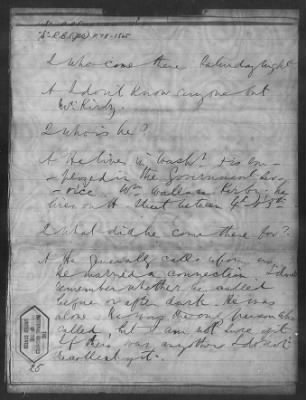 R.B. (JA) 1865
Q Who come there Saturday night
A I dont know any one but
Wm Kirby.
Q Who is he?
A He lives in Washn. Is em-
-ployed in the Government Ser-
-vice. Wm Wallace Kirby; he
lives on H street between 4th & 5th
Q What did he come there for?
A He generally calls upon us,
he married a connection. I dont
remember whether he called
before or after dark. He was
alone. He was the one person who
called, but I am not sure of it.
If there was any other I do not
recollect it.
25